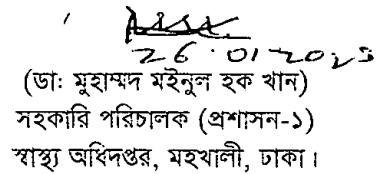 26.01-2025
(ডাঃ মুহাম্মদ মইনুল হক খান)
সহকারি পরিচালক (প্রশাসন-১)
স্বাস্থ্য অধিদপ্তর, মহখালী, ঢাকা।